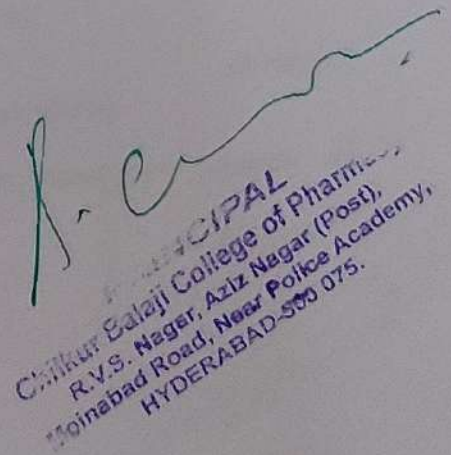 PRINCIPAL
Chilkur Balaji College of Pharmacy,
R.V.S. Nagar, Aziz Nagar (Post),
Moinabad Road, Near Police Academy,
HYDERABAD-500 075.